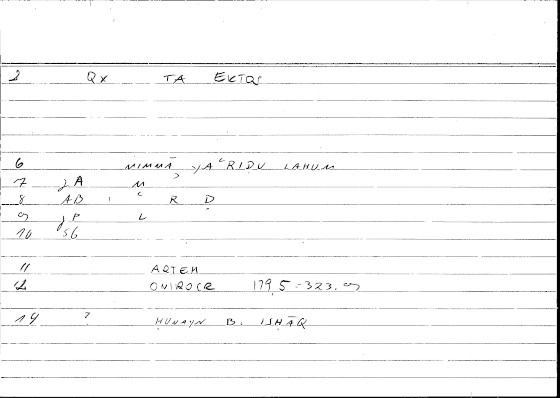 2 Qx TA EKTQS
6 MIMMĀ YAʿRIDU LAHUM
7 jA M
8 AB ʿ R Ḍ
9 jP L
10 56
11 ARTEM
12 ONIROCR 179,5-323,9
14 ? ḤUNAYN B. ISḤĀQ